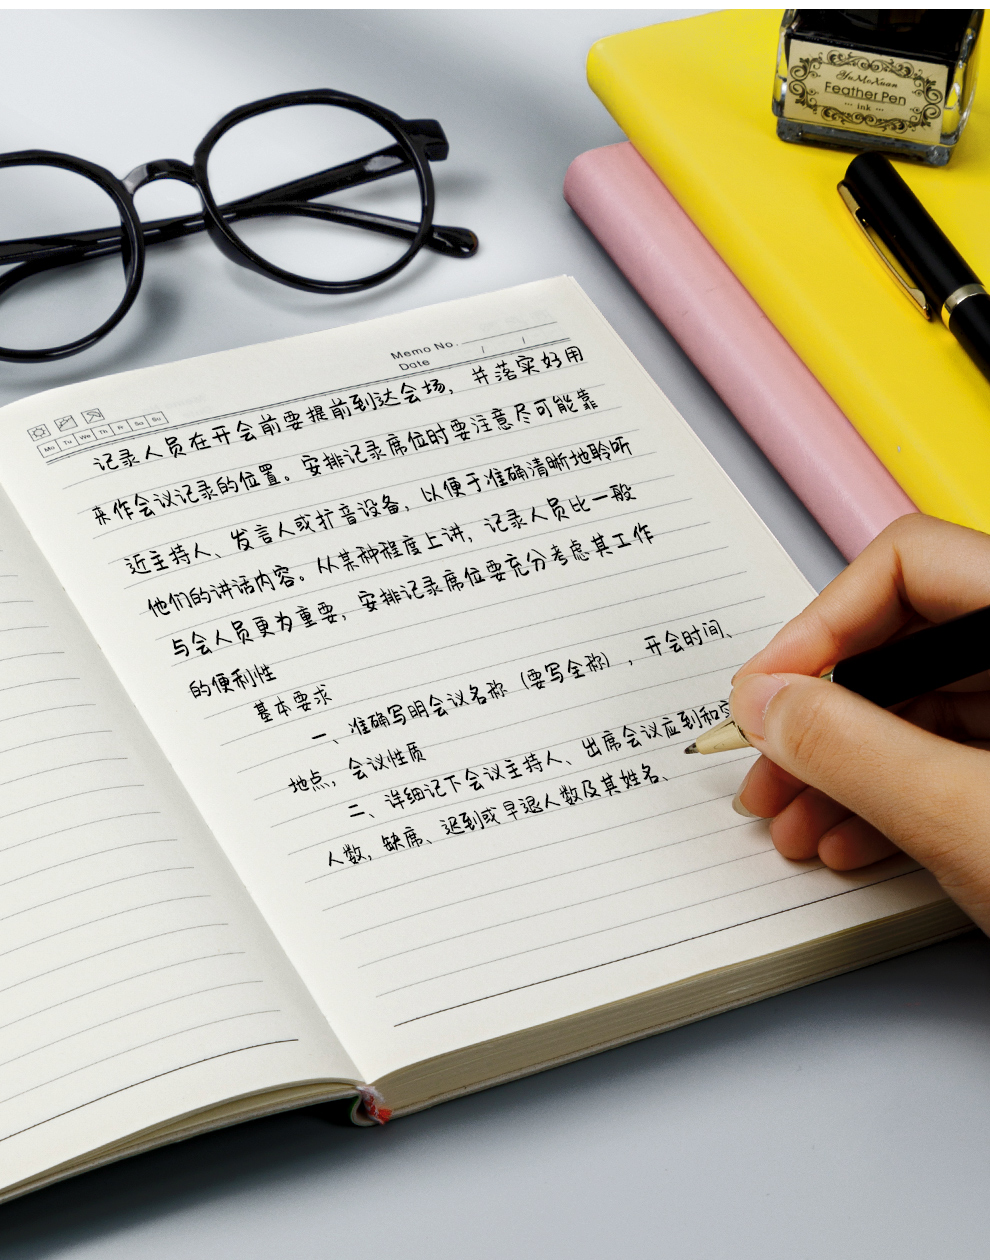 YuMoXuan
Feather Pen
... ink ...
Memo No.
Date / /
Mo Tu We Th Fr Sa Su
记录人员在开会前要提前到达会场，并落实好用
来作会议记录的位置。安排记录席位时要注意尽可能靠
近主持人、发言人或扩音设备，以便于准确清晰地聆听
他们的讲话内容。从某种程度上讲，记录人员比一般
与会人员更为重要，安排记录席位要充分考虑其工作
的便利性
基本要求
一、准确写明会议名称（要写全称），开会时间、
地点，会议性质
二、详细记下会议主持人、出席会议应到和
人数，缺席、迟到或早退人数及其姓名、